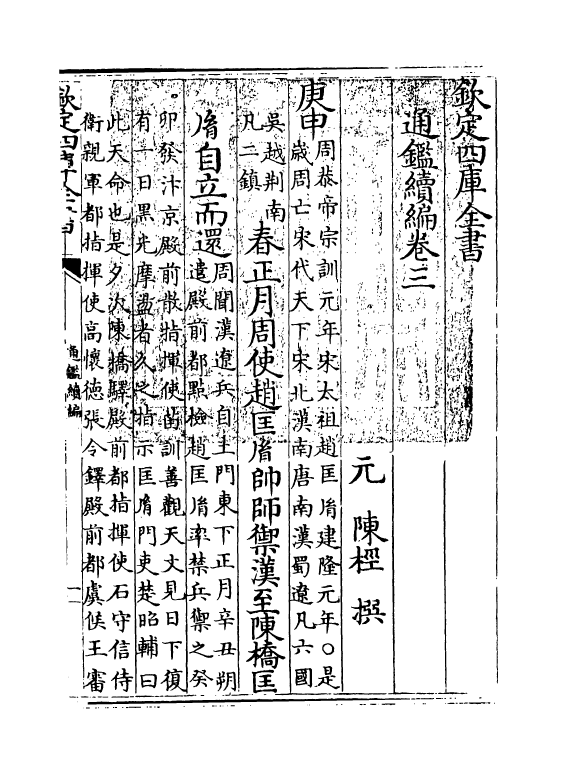 欽定四庫全書
通鑑續編卷三
元 陳桱 撰
庚申
周恭帝宗訓元年宋太祖趙匡𦙍建隆元年○是
歳周亡宋代天下宋北漢南唐南漢蜀遼凡六國
吳越荆南
凡二鎮
春正月周使趙匡𦙍帥師禦漢至陳橋匡
𦙍自立而還
周聞漢遼兵自土門東下正月辛丑朔
遣殿前都㸃檢趙匡𦙍率禁兵禦之癸
卯發汴京殿前散指揮使苗訓善觀天文見日下復
有一日黒光摩盪者久之指示匡𦙍門吏楚昭輔曰
此天命也是夕次陳橋驛殿前都指揮使石守信侍
衛親軍都指揮使髙懷徳張令鐸殿前都虞候王審
欽定四庫全書
通鑑續編
一